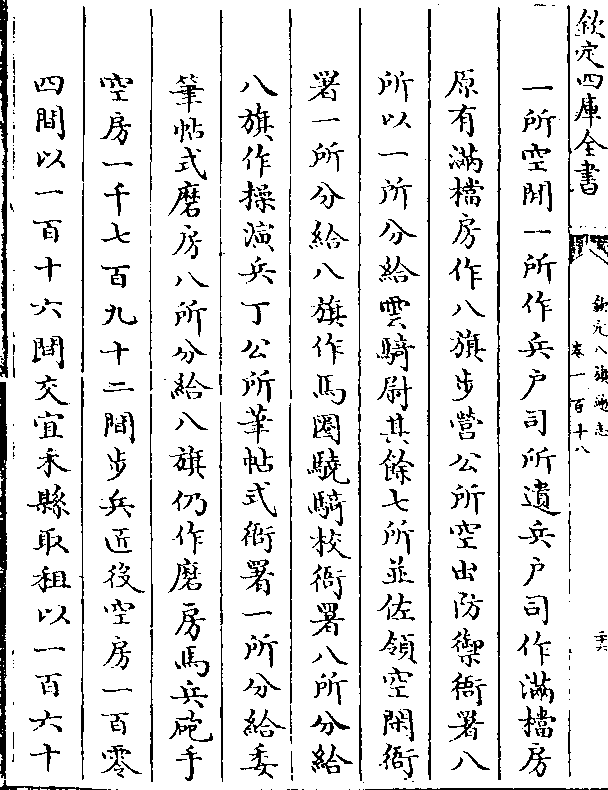 欽定四庫全書
欽定八旗通志
卷一百十八
一所空閒一所作兵户司所遺兵户司作滿檔房
原有滿檔房作八旗步營公所空出防禦衙署八
所以一所分給雲騎尉其餘七所並佐領空閑衙
署一所分給八旗作馬圈驍騎校衙署八所分給
八旗作操演兵丁公所筆帖式衙署一所分給委
筆帖式磨房八所分給八旗仍作磨房馬兵砲手
空房一千七百九十二間步兵匠役空房一百零
四間以一百十六間交宜禾縣取租以一百六十